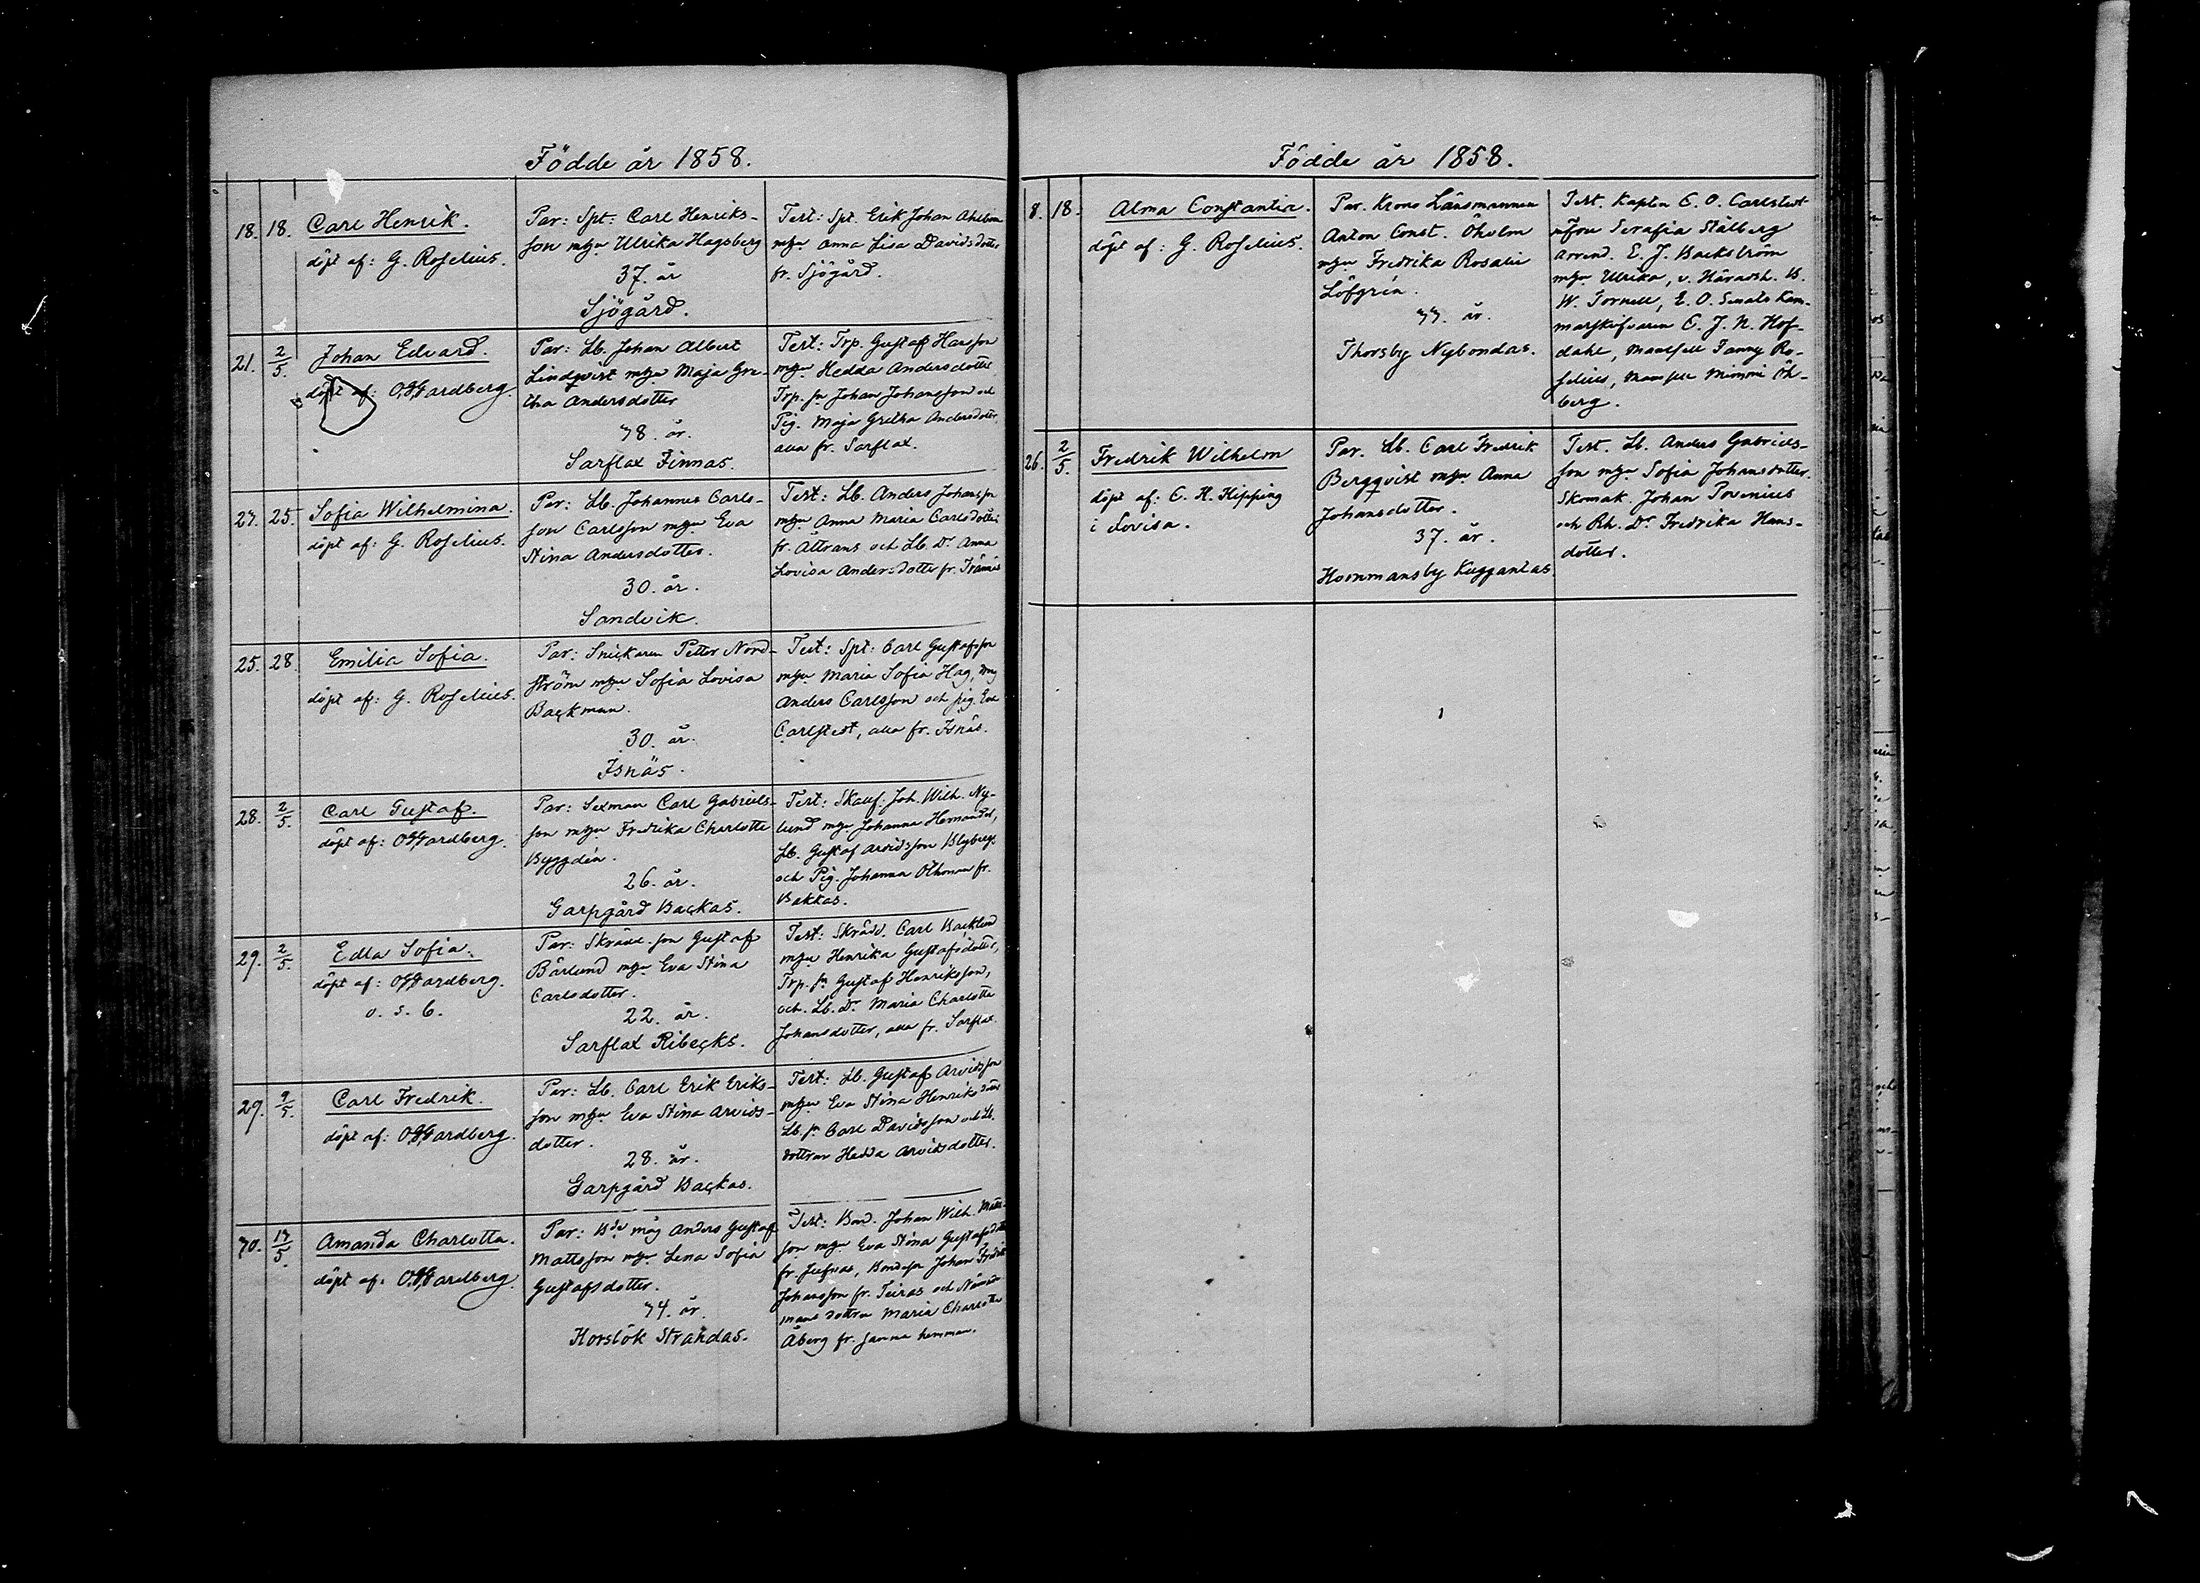 Födde år 1858.
18. 18. Carl Henrik.
döpt af: G. Roselius.
Par: Spt: Carl Henriks-
son m hu Ulrika Hagsberg
37. år
Sjögård.
Test: Spt. Erik Johan
m hu Anna Lisa Davidsdotter
fr. Sjögård.
21. 2/5. Johan Edvard.
döpt af: O. G. Gardberg.
Par: Lb. Johan Albert
Lindqvist m hu Maja Gre-
tha Andersdotter
38. år.
Sarflax Finnas.
Test: Trp. Gustaf Hansson
m hu Hedda Andersdotter
Trp. sn Johan Johansson och
Pig. Maja Gretha Andersdotter,
alla fr. Sarflax.
23. 25. Sofia Wilhelmina.
döpt af: G. Roselius.
Par: Lb. Johannes Carls-
son Carlsson m hu Eva
Stina Andersdotter.
30. år.
Sandvik.
Test: Lb. Anders Johansson
m hu Anna Maria Carlsdotter
fr. och Lb. Dr Anna
Lovisa Andersdotter fr.
25. 28. Emilia Sofia.
döpt af: G. Roselius.
Par: Snickaren Petter Nord-
ström m hu Sofia Lovisa
Backman.
30. år.
Isnäs.
Test: Spt: Carl Gustafsson
m hu Maria Sofia Hag, dräng
Anders Carlsson och pig. Eva
Carlstedt, alla fr. Isnäs.
28. 2/5. Carl Gustaf.
döpt af: O. G. Gardberg.
Par: Sexman Carl Gabriels-
son m hu Fredrika Charlotte
Byggdén.
26. år.
Garpgård Backas.
Test: Skauf. Joh. Wilh. Ny-
lund m hu Johanna
Lb. Gustaf Arvidsson
och Pig. Johanna fr.
Bakkas.
29. 2/5. Edla Sofia.
döpt af: O. G. Gardberg.
o. s. 6.
Par: Skrädd. son Gustaf
Bärlund m hu Eva Stina
Carlsdotter.
22. år.
Sarflax Ribecks.
Test: Skrädd. Carl Backlund
m hu Henrika Gustafsdotter,
Trp. sn Gustaf Henriksson,
och Lb. Dr Maria Charlotta
Johansdotter, alla fr. Sarflax.
29. 9/5. Carl Fredrik.
döpt af: O. G. Gardberg.
Par: Lb. Carl Erik Eriks-
son m hu Eva Stina Arvids-
dotter.
28. år.
Garpgård Backas.
Test: Lb. Gustaf Arvidsson
m hu Eva Stina Henriksdotter
Lb. sn Carl Davidsson och Lb.
dottran Hedda Arvidsdotter.
30. 13/5. Amanda Charlotta.
döpt af: O. G. Gardberg.
Par: Bde måg Anders Gustaf
Mattsson m hu Lena Sofia
Gustafsdotter.
34. år.
Horslök Strandas.
Test: Bond. Johan Wilh. Matts-
son m hu Eva Stina Gustafsdotter
fr. Bondesn Johan Fredrik
Johansson fr. Teiras och Nämde-
mans dottran Maria Charlotta
Åberg fr. samma hemman.
Födde år 1858.
8. 18. Alma Constantia.
döpt af: G. Roselius.
Par. Krono Länsmannen
Anton Const. Öholm
m hu Fredrika Rosalie
Löfgrén.
33. år.
Thorsby Nybondas.
Test. Kapten C. O. Carlstedt
m fru Serafia Stålberg
Arrend. E. J. Backström
m hu Ulrika, v. Häradsh. B.
W. Tornell, E. O. Senats Kam-
marskrifvaren C. J. N. Hof-
dahl, Mamsell Fanny Ro-
selius, Mamsell Mimmi Öh-
berg.
26. 2/5. Fredrik Wilhelm
döpt af: C. H. Hipping
i Lovisa.
Par. Lb. Carl Fredrik
Bergqvist m hu Anna
Johansdotter.
37. år.
Hommansby Kuggantas.
Test. Lb. Anders Gabriels-
son m hu Sofia Johansdotter.
Skomak. Johan Povenius
och Rh. Dr Fredrika Hans-
dotter.